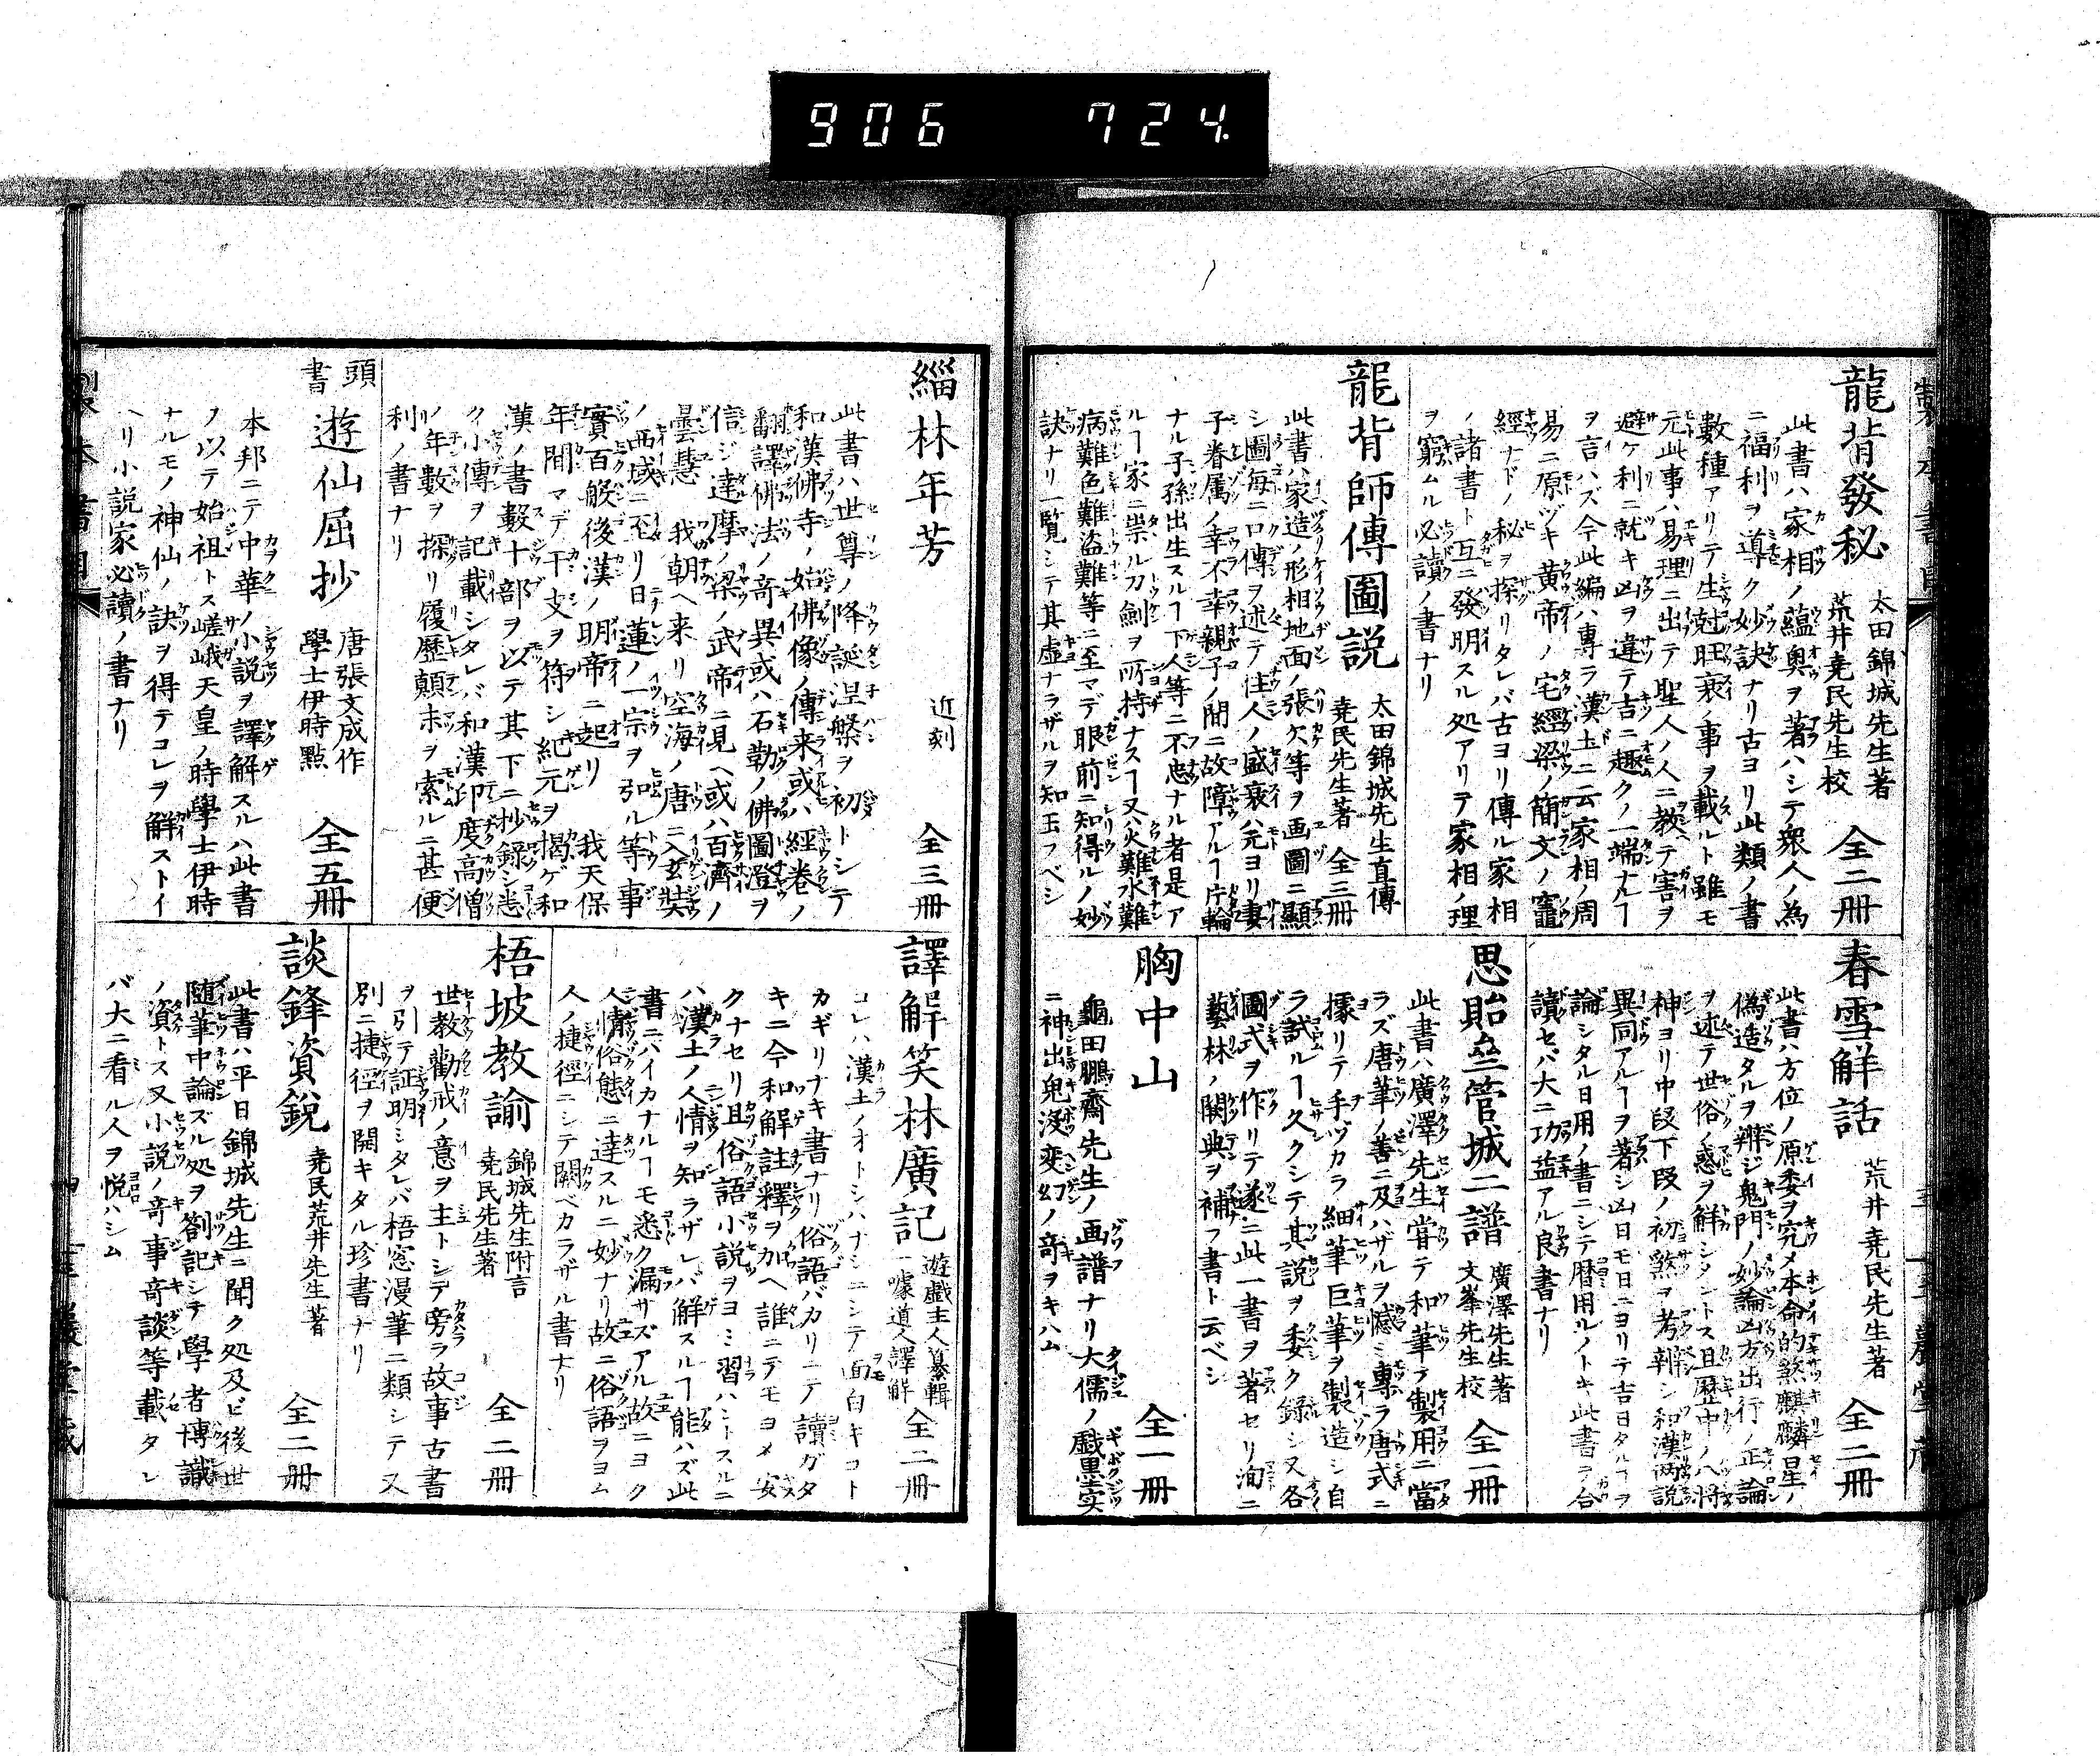 906 724
龍背發秘
太田錦城先生著
荒井堯民先生校
全二冊
此書ハ家相ノ蘊奥ヲ著ハシテ衆人ノ為
ニ福利ヲ導ク妙訣ナリ古ヨリ此類ノ書
數種アリテ生尅旺衰ノ事ヲ載ルト雖モ
元此事ハ易理ニ出テ聖人ノ人ニ教ヘテ害ヲ
避ケ利ニ就キ凶ヲ違テ吉ニ趣クノ一端ナルヿ
ヲ言ハズ今此編ハ專ラ漢土ニ云家相ノ周
易ニ原ヅキ黄帝ノ宅經梁ノ簡文ノ竈
經ナドノ秘ヲ探リタレバ古ヨリ傳ル家相
ノ諸書ト互ニ發明スル処アリテ家相ノ理
ヲ窮ムル必讀ノ書ナリ
龍背師傳圖説
太田錦城先生直傳
堯民先生著
全三冊
此書ハ家造ノ形相地面ノ張欠等ヲ画圖ニ顯
シ圖毎ニ口傳ヲ述テ住人ノ盛衰ハ元ヨリ妻
子眷属ノ幸不幸親子ノ間ニ故障アルヿ片輪
ナル子孫出生スルヿ下人等ニ不忠ナル者是ア
ルヿ家ニ祟ル刀劍ヲ所持ナスヿ又火難水難
病難色難盗難等ニ至マデ眼前ニ知得ルノ妙
訣ナリ一覧シテ其虚ナラザルヲ知玉フベシ
春雪解話
荒井堯民先生著
全二冊
此書ハ方位ノ原委ヲ究メ本命的煞麒麟星ノ
偽造タルヲ辨ジ鬼門ノ妙論凶方出行ノ正論
ヲ述テ世俗ノ惑ヲ解シタントス且歴中ノ八將
神ヨリ中段下段ノ初煞ヲ考辨シ和漢兩説
異同アルヿヲ著シ凶日モ日ニヨリテ吉日タルヿヲ
論シタル日用ノ書ニシテ暦用ルノトキ此書ヲ合
讀セバ大ニ功益アル良書ナリ
思貽壘管城二譜
廣澤先生著
文峯先生校
全一冊
此書ハ廣澤先生嘗テ和筆ヲ製用ニ當
ラズ唐筆ノ善ニ及ハザルヲ憾ミ專ラ唐式ニ
據リテ手ヅカラ細筆巨筆ヲ製造シ自
ラ試ルヿ久クシテ其説ヲ委ク録シ又各
圖式ヲ作リテ遂ニ此一書ヲ著セリ洵ニ
藝林ノ闕典ヲ補フ書ト云ベシ
胸中山
全一冊
龜田鵬齋先生ノ画譜ナリ大儒ノ戯墨実
ニ神出鬼没変幻ノ竒ヲキハム
緇林年芳
近刻
全三冊
此書ハ世尊ノ降誕涅槃ヲ初トシテ
和漢佛寺ノ始佛像ノ傳来或ハ經卷ノ
翻譯佛法ノ竒異或ハ石勒ノ佛圖澄ヲ
信ジ達摩ノ梁ノ武帝ニ見ヘ或ハ百濟ノ
曇慧 我朝ヘ来リ空海ノ唐ニ入玄奘
ノ西域ニ至リ日蓮ノ一宗ヲ弘ル等事
實百般後漢ノ明帝ニ起リ 我天保
年間マデ干支ヲ符シ紀元ヲ掲ゲ和
漢ノ書数十部ヲ以テ其下ニ抄録シ悉
ク小傳ヲ記載シタレバ和漢印度高僧
ノ年數ヲ探リ履歴顛末ヲ索ルニ甚便
利ノ書ナリ
頭書
遊仙屈抄
唐張文成作
學士伊時點
全五冊
本邦ニテ中華ノ小説ヲ譯解スルハ此書
ノ以テ始祖トス嵯峨天皇ノ時學士伊時
ナルモノ神仙ノ訣ヲ得テコレヲ解ストイ
ヘリ小説家必讀ノ書ナリ
譯解笑林廣記
遊戯主人纂輯
一噱道人譯解
全二冊
コレハ漢土ノオトシハナシニシテ面白キコト
カギリナキ書ナリ俗語バカリニテ讀ガタ
キニ今和解註釋ヲ加ヘ誰ニテモヨメ安
クナセリ且俗語小説ヲヨミ習ハントスルニ
ハ漢土ノ人情ヲ知ラザレバ解スルヿ能ハズ此
書ニハイカナルヿモ悉ク漏サズアル故ニヨク
人情俗態ニ達スルニ妙ナリ故ニ俗語ヲヨム
人ノ捷徑ニシテ闕ベカラザル書ナリ
梧坡教諭
錦城先生附言
堯民先生著
全二冊
世教勸戒ノ意ヲ主トシテ旁ラ故事古書
ヲ引テ証明シタレバ梧窓漫筆ニ類シテ又
別ニ捷徑ヲ開キタル珍書ナリ
談鋒資鋭
堯民荒井先生著
全二冊
此書ハ平日錦城先生ニ聞ク処及ビ後世
随筆中論ズル処ヲ劄記シテ學者博識
ノ資トス又小説ノ竒事竒談等載タレ
バ大ニ看ル人ヲ悦ハシム